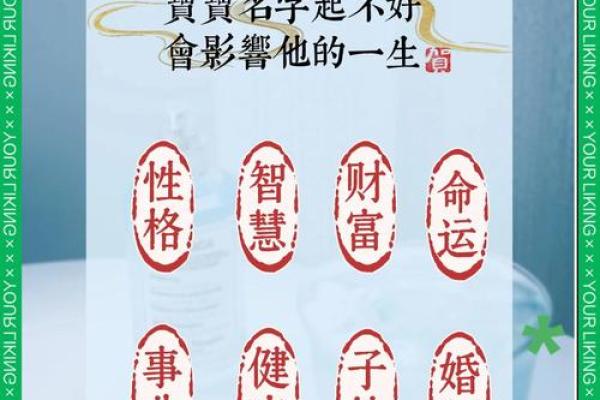 寶寶名字起不好
會影響他的一生
賀
性格
智慧
财富
命运
事
健
子
婚
YOUR LIKING × × YOUR LIKING × × YOUR LIKING
YOUR LIKING × × YOUR LIKING × × YOUR LIKING